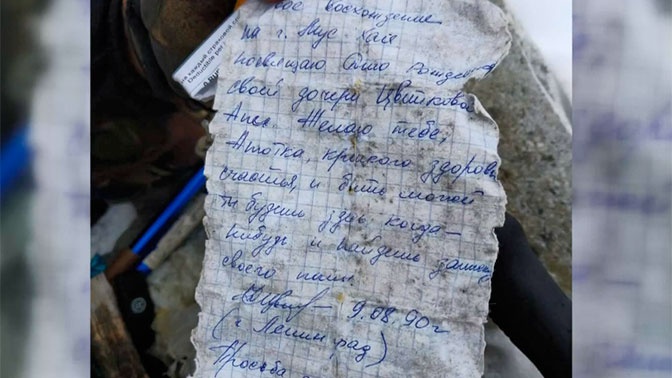 восхождение
на г. Мус Хая
посвящаю Дню рождения
своей дочери Цветковой
Желаю тебе,
Анютка, крепкого здоровья
счастья, и быть может
ты будешь здесь когда-
нибудь и найдешь записку
своего папы.
9.08.90г
(г. Ленинград)
Просьба
на каждый страховой
Deductible per